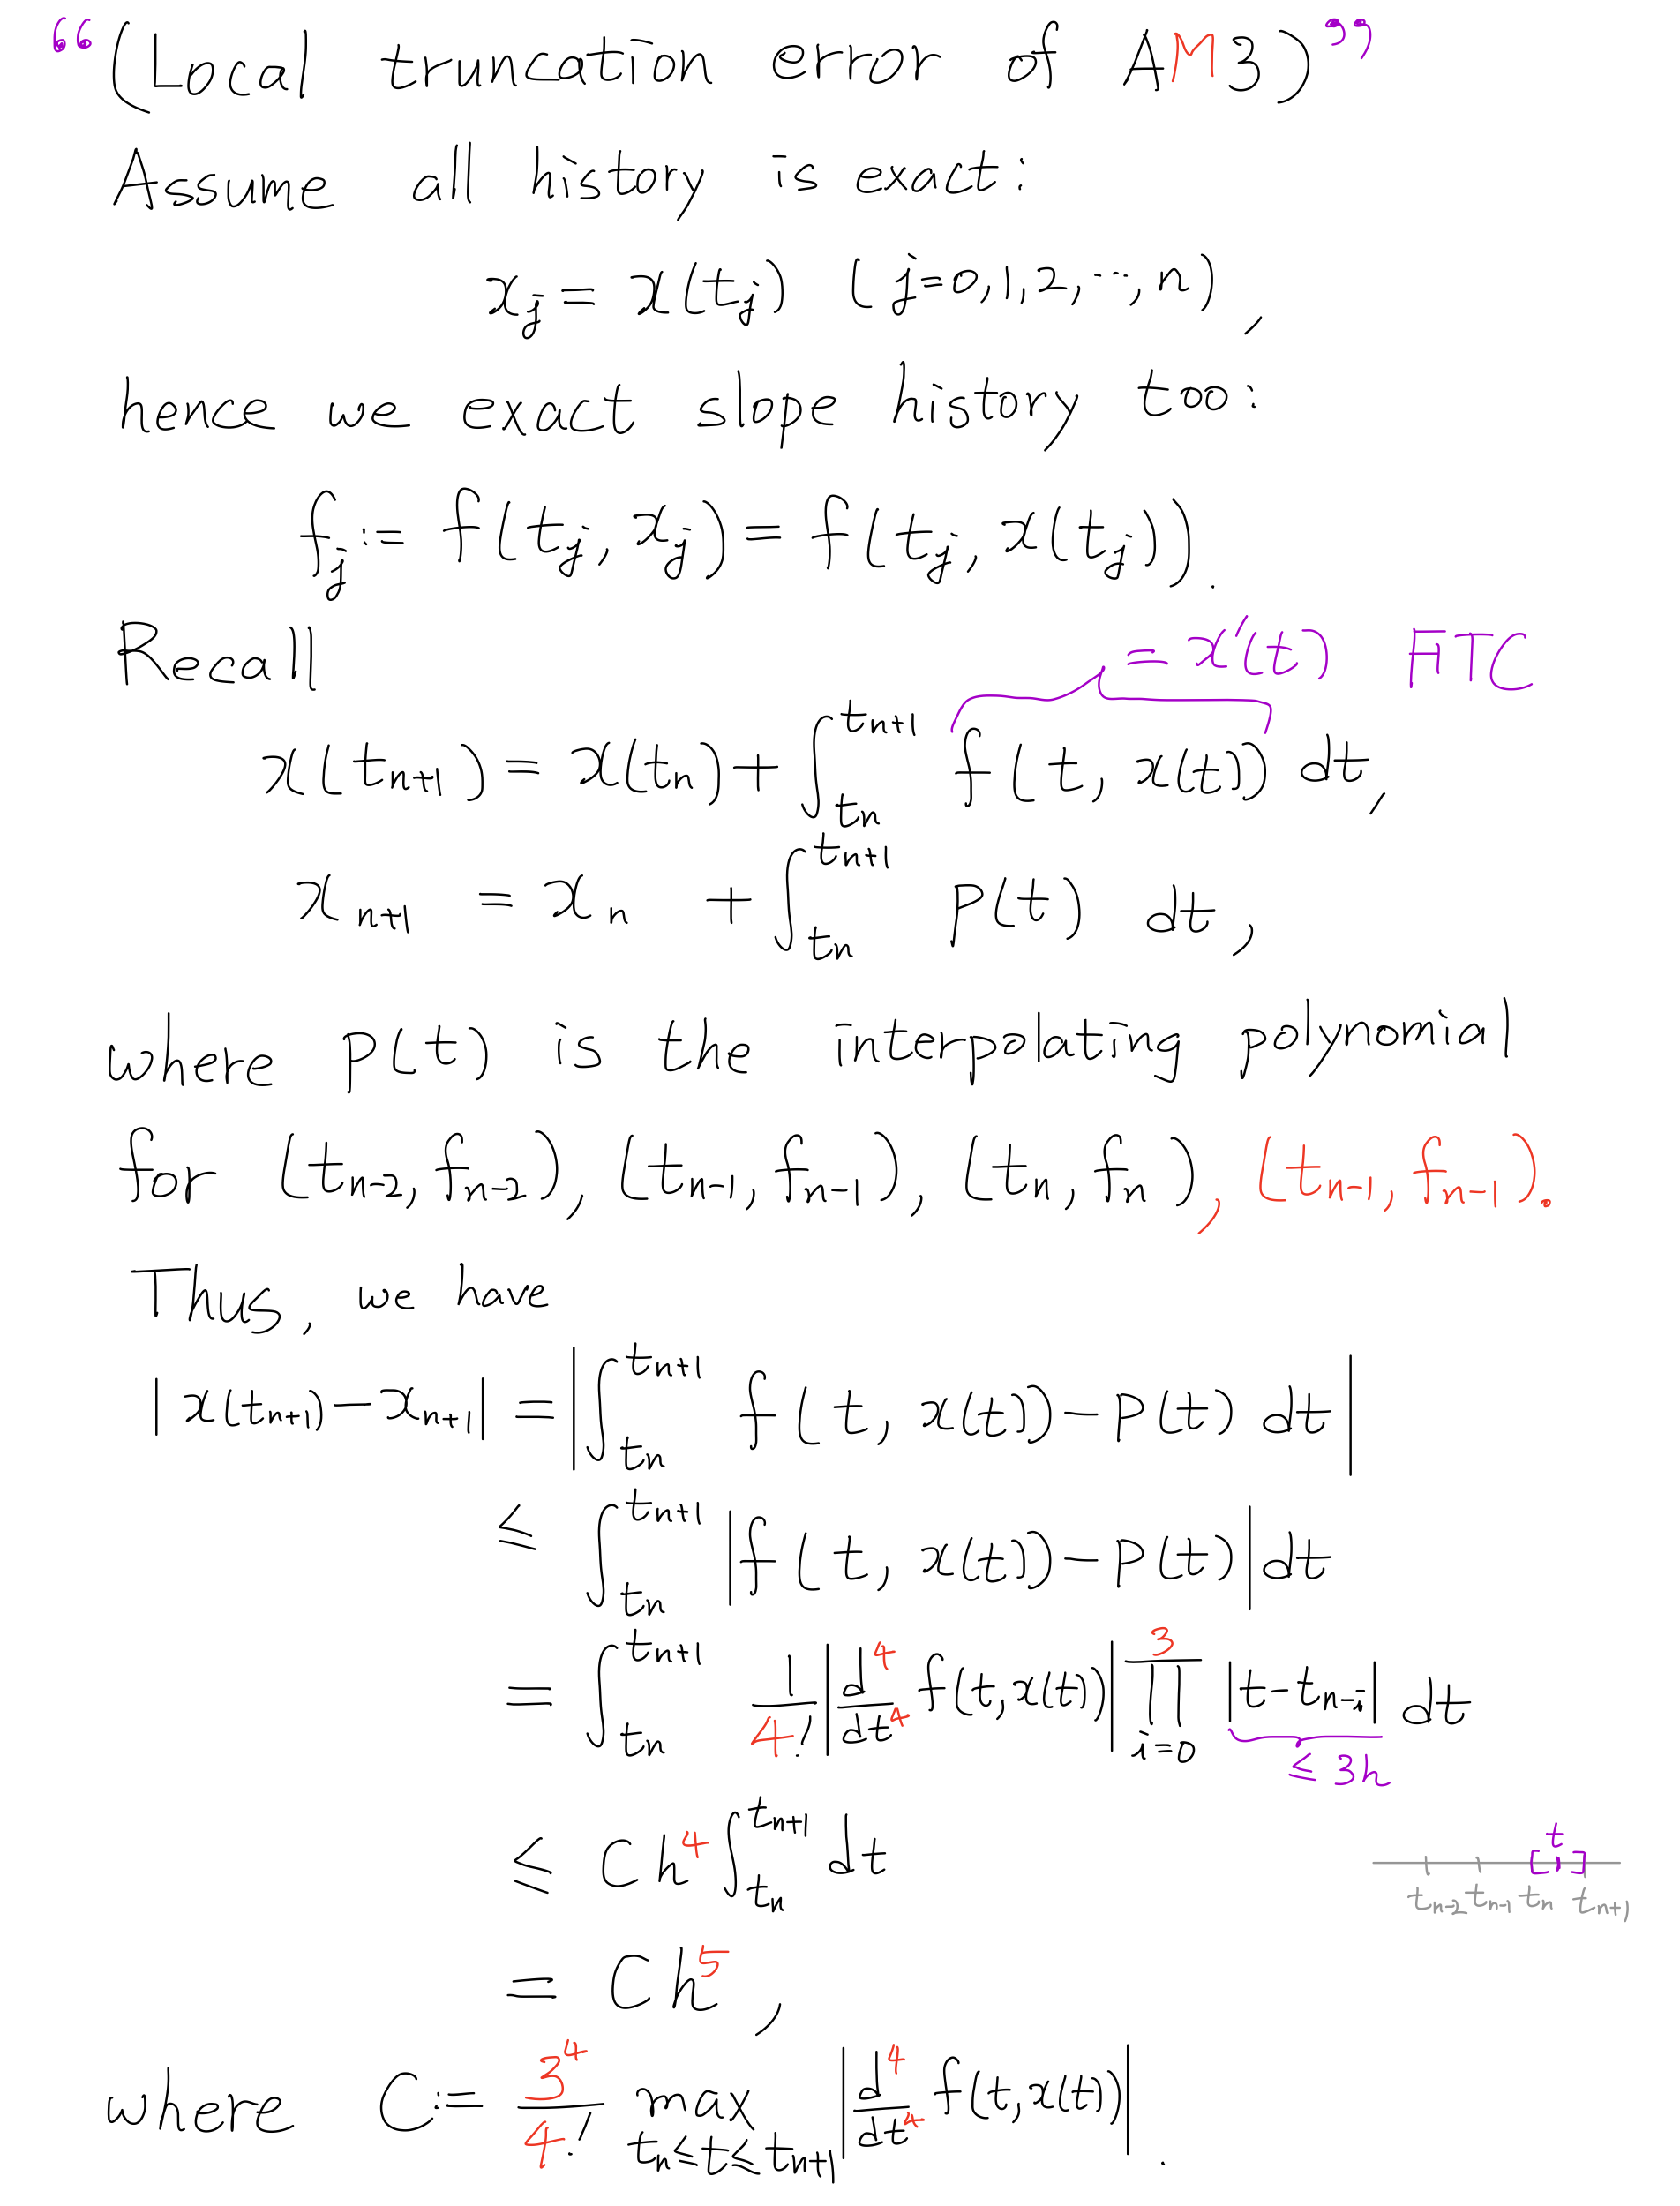 “(Local truncation error of AM3)”
Assume all history is exact:
x_j = x(t_j) (j=0,1,2,…,n),
hence we exact slope history too:
f_j := f(t_j, x_j) = f(t_j, x(t_j)).
Recall
= x'(t) FTC
x(t_{n+1}) = x(t_n) + ∫_{t_n}^{t_{n+1}} f(t, x(t)) dt,
x_{n+1} = x_n + ∫_{t_n}^{t_{n+1}} p(t) dt,
where p(t) is the interpolating polynomial
for (t_{n-2}, f_{n-2}), (t_{n-1}, f_{n-1}), (t_n, f_n), (t_{n-1}, f_{n-1}).
Thus, we have
|x(t_{n+1}) − x_{n+1}| = |∫_{t_n}^{t_{n+1}} f(t, x(t)) − p(t) dt|
≤ ∫_{t_n}^{t_{n+1}} |f(t, x(t)) − p(t)| dt
= ∫_{t_n}^{t_{n+1}} 1/4! |d^4/dt^4 f(t, x(t))| ∏_{i=0}^{3} |t − t_{n-i}| dt
≤ 3h
≤ Ch^4 ∫_{t_n}^{t_{n+1}} dt
t
[ ]
t_{n-2} t_{n-1} t_n t_{n+1}
= Ch^5,
where C := 3^4/4! max_{t_n≤t≤t_{n+1}} |d^4/dt^4 f(t, x(t))|.